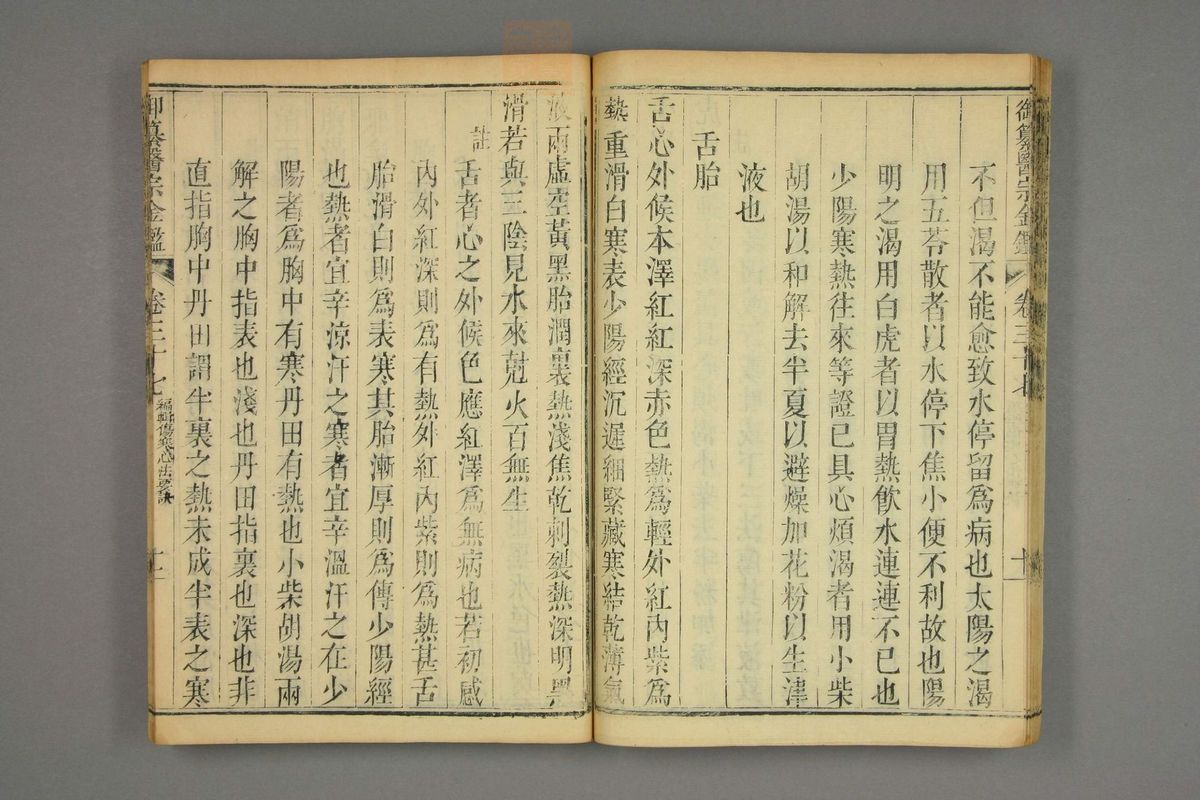 御纂醫宗金鑑 卷三十七 十一
不但渴不能愈致水停留爲病也太陽之渴
用五苓散者以水停下焦小便不利故也陽
明之渴用白虎者以胃熱飲水連連不已也
少陽寒熱往來等證已具心煩渴者用小柴
胡湯以和解去半夏以避燥加花粉以生津
液也
舌胎
舌心外候本澤紅紅深赤色熱爲輕外紅内紫爲
熱重滑白寒表少陽經沉遲細緊藏寒結乾薄氣
液兩虛空黃黑胎潤裏熱淺焦乾刺裂熱深明黑
滑若與三陰見水來尅火百無生
註
舌者心之外候色應紅澤爲無病也若初感
内外紅深則爲有熱外紅内紫則爲熱甚舌
胎滑白則爲表寒其胎漸厚則爲傳少陽經
也熱者宜辛涼汗之寒者宜辛溫汗之在少
陽者爲胸中有寒丹田有熱也小柴胡湯兩
解之胸中指表也淺也丹田指裏也深也非
直指胸中丹田謂半裏之熱未成半表之寒
御纂醫宗金鑑 卷三十七 編輯傷寒心法要訣 十一